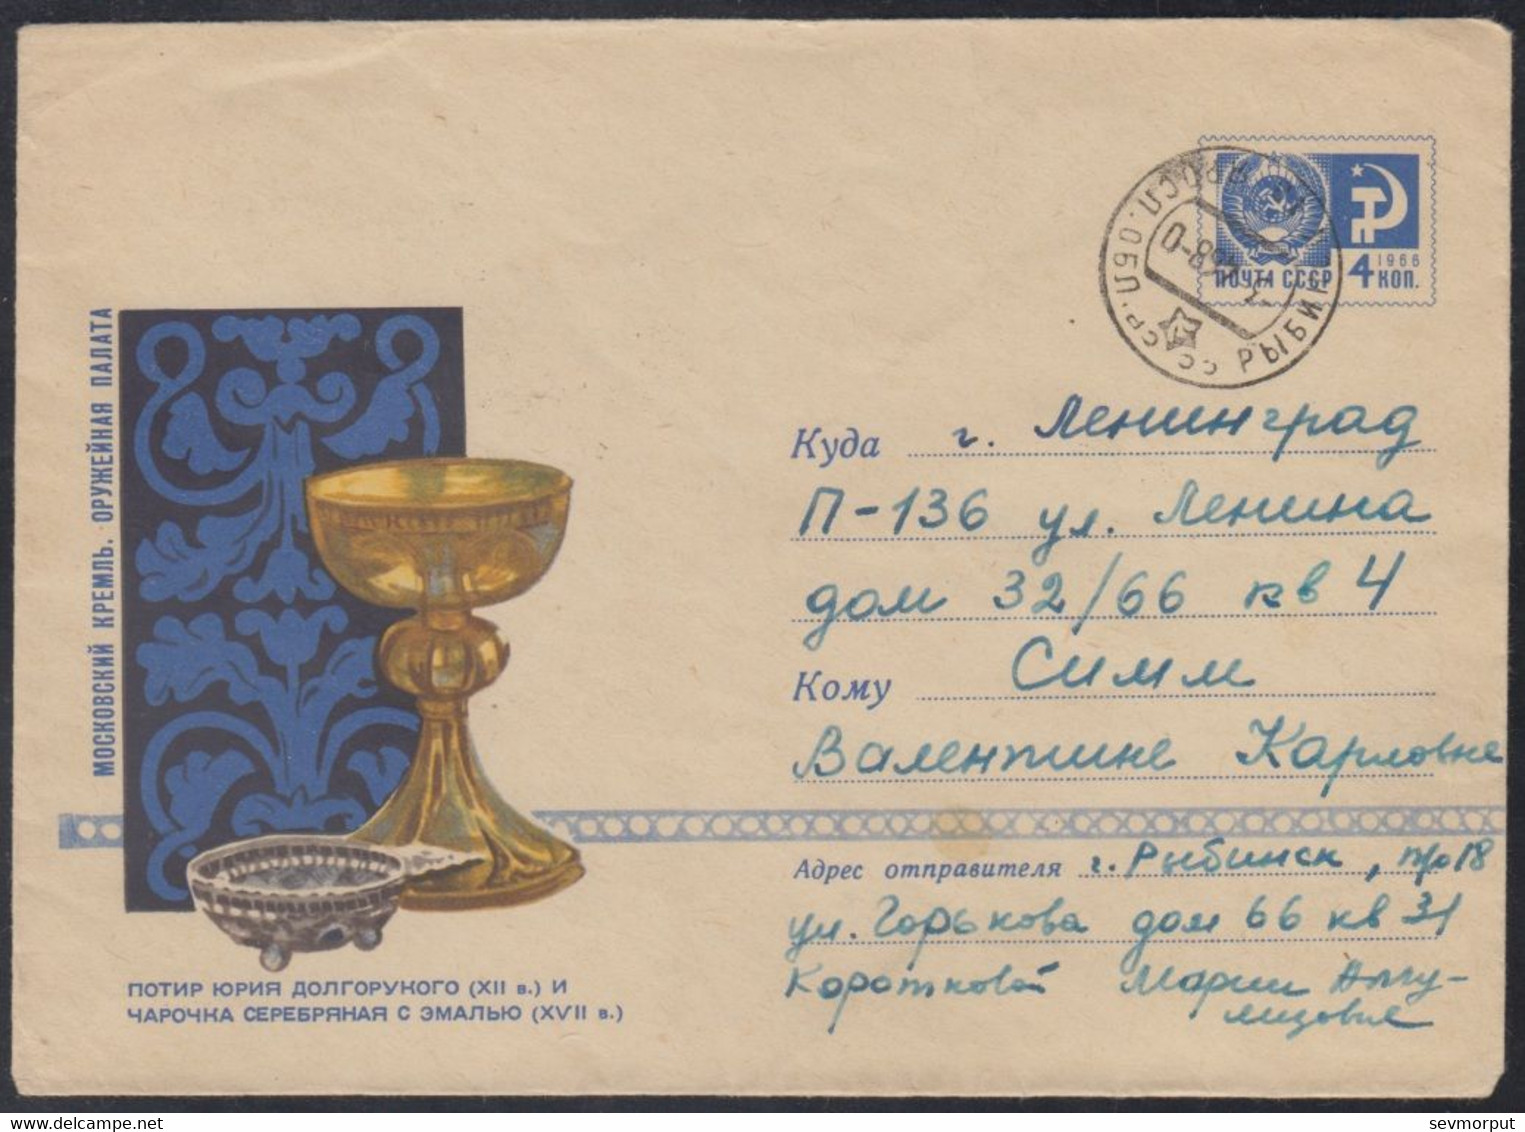 МОСКОВСКИЙ КРЕМЛЬ. ОРУЖЕЙНАЯ ПАЛАТА
ПОТИР ЮРИЯ ДОЛГОРУКОГО (XII в.) И
ЧАРОЧКА СЕРЕБРЯНАЯ С ЭМАЛЬЮ (XVII в.)
ПОЧТА СССР
1966
4 КОП.
ЯРОСЛ. ОБЛ.
РЫБИН
Куда г. Ленинград
П-136 ул. Ленина
дом 32/66 кв 4
Кому Симм
Валентине Карловне
Адрес отправителя г. Рыбинск, п/о 18
ул. Горькова дом 66 кв 31
Коротковой Марии
sevmorput